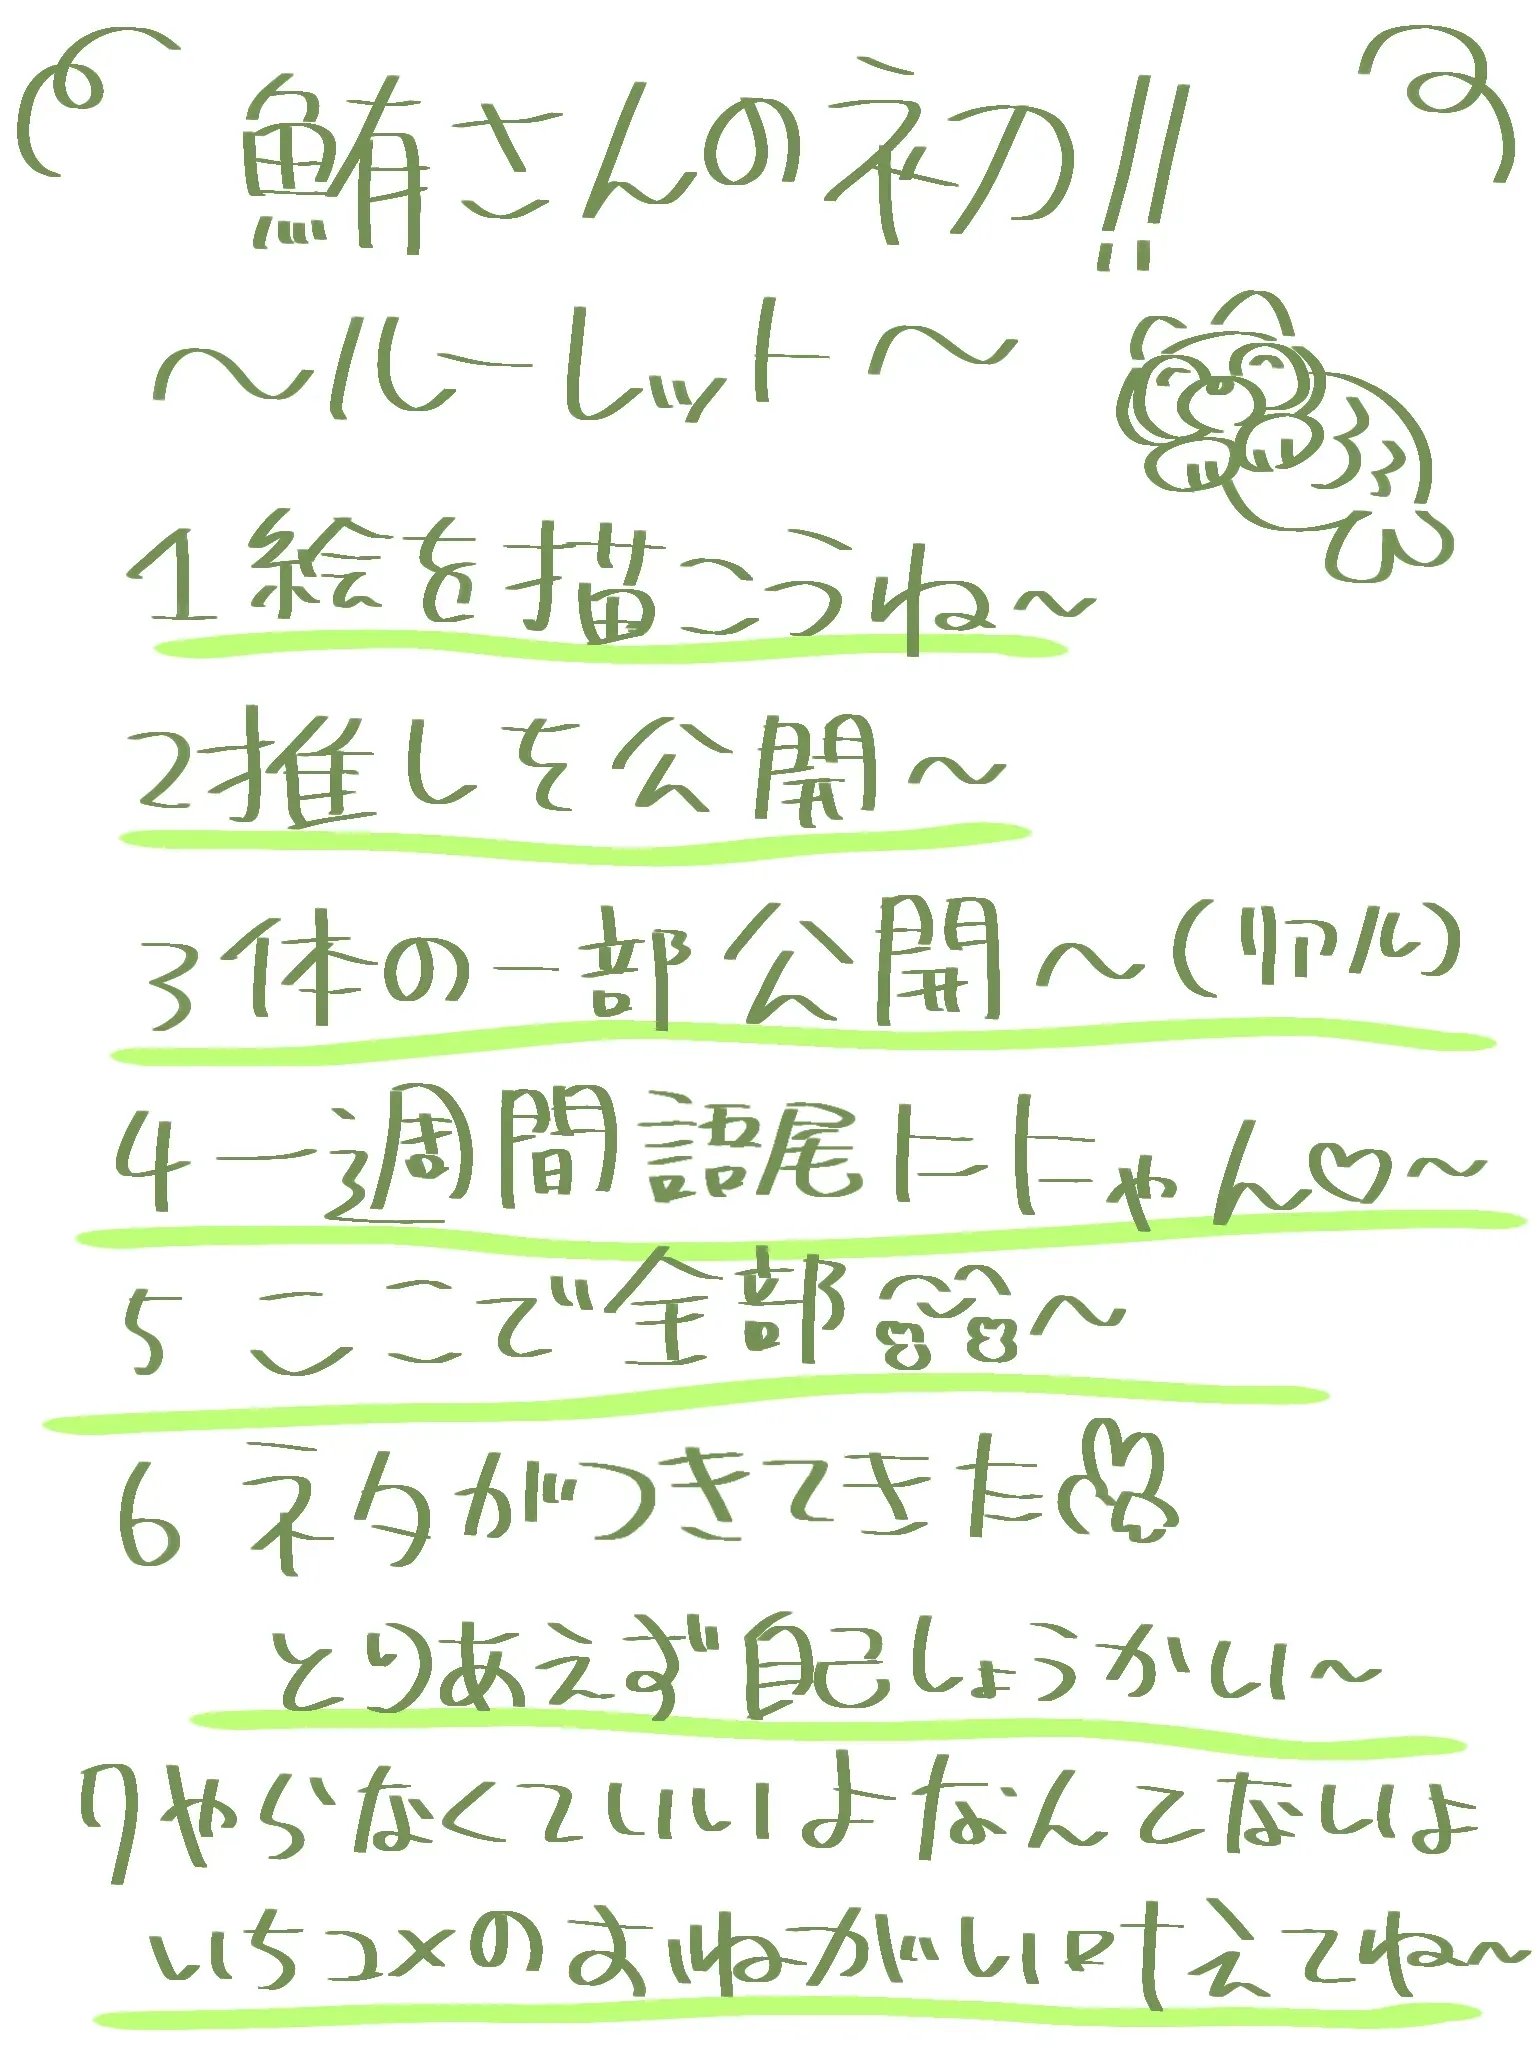 鮪さんの初!!
〜ルーレット〜
1絵を描こうね〜
2推しを公開〜
3体の一部公開〜(リアル)
4一週間語尾ににゃん♡〜
5ここで全部〜
6ネタがつきてきた
とりあえず自己しょうかい〜
7やらなくていいよなんてないよ
いちコメのおねがい叶えてね〜